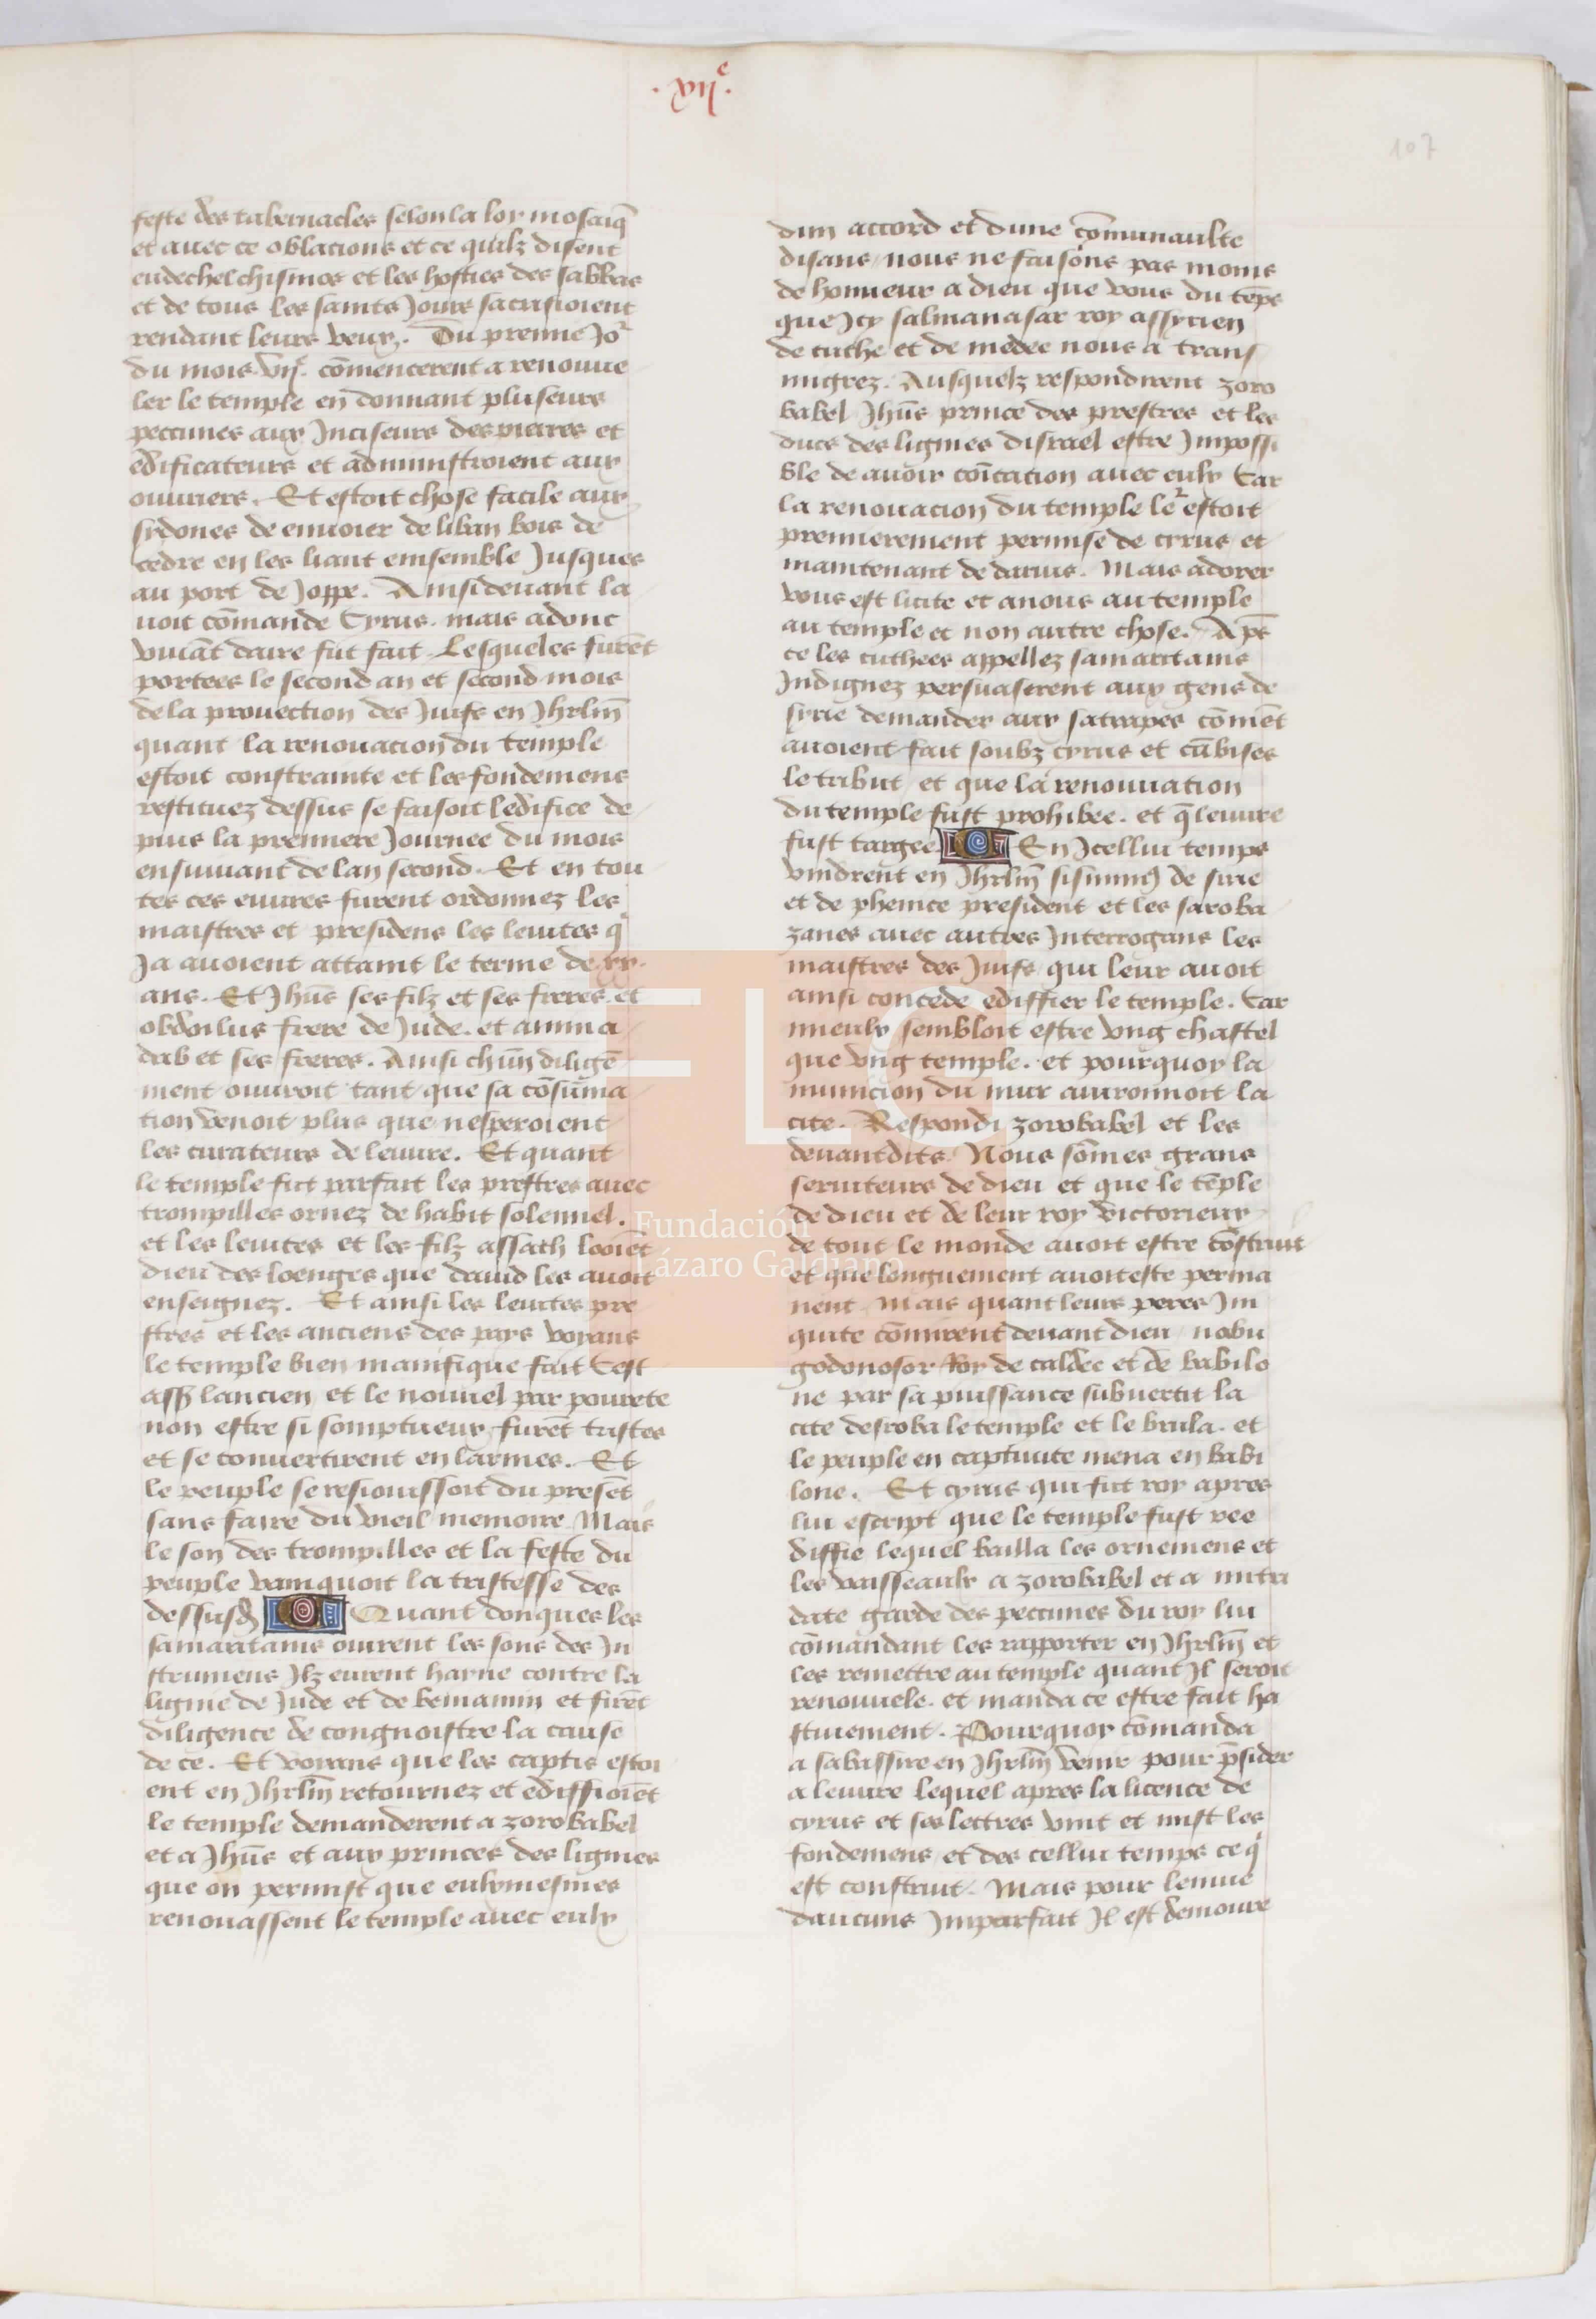 .xijͤ.
107
feste des tabernacles selon la loy mosaiq̄
et auec ce oblacions et ce quilz disent
endechelchismos et les hosties des sabbas
et de tous les saints Jours sacrifioient
rendant leurs veux. Du premie Joʳ
du mois vijͤ. cōmencerent a renouue
ler le temple en donnant pluseurs
peccunes aux Inciseurs des pierres et
edificateurs et administroient aux
ouuriers. Et estoit chose facile aux
sydones de enuoier de liban bois de
cedre en les liant emsemble Jusques
au port de Joppe. Ainsi deuant la
uoit cōmande Cyrus. mais adonc
viuāt daire fut fait. Lesqueles furēt
portees le second an et second mois
de la prouection des Juifs en Jhrlm̄
quant la renouacion du temple
estoit constrainte et les fondemens
restituez dessus se faisoit ledifice de
puis la premiere Journee du mois
ensuiuant de lan second. Et en tou
tes ces euures furent ordonnez les
maistres et presidens les leuites q
Ja auoient attaint le terme de xx.
ans. Et Jhūs ses filz et ses freres. et
obdoilus frere de Jude. et amina
dab et ses freres. Ainsi chūn diligē
ment ouuroit tant que sa cōsūma
tion venoit plus que nesperoient
les curateurs de leuure. Et quant
le temple fut parfait les prestres auec
trompilles ornez de habit solennel.
et les leuites et les filz assaph looiēt
dieu des loenges que dauid les auoit
enseignez. Et ainsi les leuites pre
stres et les anciens des pays voyans
le temple bien manifique fait Cest
ass̄ lancien et le nouuel par pourete
non estre si somptueux furēt tristes
et se conuertirent en larmes. Et
le peuple se resiouissoit du presēt
sans faire du vieil memoire Mais
le son des trompilles et la feste du
peuple vainquoit la tristesse des
dessusd̄ Quant donques les
samaritains ouirent les sons des In
strumens Ilz eurent hayne contre la
lignie de Jude et de beniamin et firēt
diligence de congnoistre la cause
de ce. Et voyans que les captis estoi
ent en Jhrlm̄ retournez et ediffioiēt
le temple demanderent a zorobabel
et a Jhūs et aux princes des lignies
que on permist que eulxmesmes
renouassent le temple auec eulx
dun accord et dune cōmunaulte
disans nous ne faisons pas moins
de honneur a dieu que vous du tēps
que Icy salmanasar roy assyrien
de cuthe et de medee nous a trans
migrez. Ausquelz respondirent zoro
babel Jhūs prince des prestres et les
ducs des lignies disrael estre Impossi
ble de auoir cōicacion auec eulx Car
la renouacion du temple leʳ estoit
premierement permise de cyrus et
maintenant de darius. Mais adorer
vous est licite et a nous au temple
au temple et non autre chose. Apͤs
ce les cuthees appellez samaritains
Indignez persuasirent aux gens de
syrie demander aux satrapes cōmēt
auoient fait soubz cyrus et cābises
le tribut et que la renouuation
du temple fust prohibee. et q̄ leuure
fust targee En Icellui temps
vindrent en Jhrlm̄ sisinnes de sirie
et de phenice president et les saroba
zanes auec autres Interrogans les
maistres des Juifs qui leur auoit
ainsi concede ediffier le temple. Car
mieulx sembloit estre vng chastel
que vng temple. et pourquoy la
municion du mur auironnoit la
cite. Respondi zorobabel et les
deuantdits. Nous sōmes grans
seruiteurs de dieu et que le tēple
de dieu et de leur roy victorieux
de tout le monde auoit estre cōstruit
et que longuement auoit este perma
nent Mais quant leurs peres Ini
quite cōmirent deuant dieu nabu
godonosor Roy de caldee et de babilo
ne par sa puissance subuertit la
cite desroba le temple et le brula. et
le peuple en captiuite mena en babi
lone. Et cyrus qui fut roy apres
lui escript que le temple fust ree
diffie lequel bailla les ornemens et
les vaisseaulx a zorobabel et a mitri
date garde des peccunes du roy lui
cōmandant les rapporter en Jhrlm̄ et
les remettre au temple quant Il seroit
renouuele. et manda ce estre fait ha
stiuement. Pourquoy cōmanda
a sabassire en Jhrlm̄ venir pour p̄sider
a leuure lequel apres la licence de
cyrus et ses lettres vint et mist les
fondemens et des cellui temps ce q
est construit. Mais pour lenuie
daucuns Imparfait Il est demoure
FLG
Fundación
Lázaro Galdiano